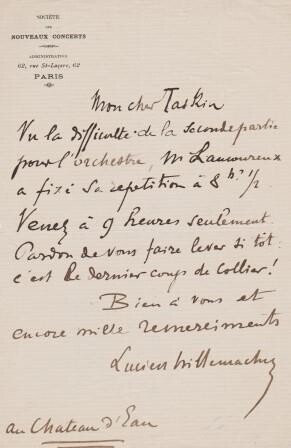 SOCIÉTÉ
DES
NOUVEAUX CONCERTS
ADMINISTRATION
62, rue St-Lazare, 62
PARIS
Mon cher Taskin
Vu la difficulté de la seconde partie
pour l'orchestre, M Lamoureux
a fixé sa repetition à 8 h. 1/2
Venez à 9 heures seulement.
Pardon de vous faire lever si tot:
c'est le dernier coup de collier!
Bien à vous et
encore mille remerciments
Lucien Hillemacher
au Chateau d'Eau